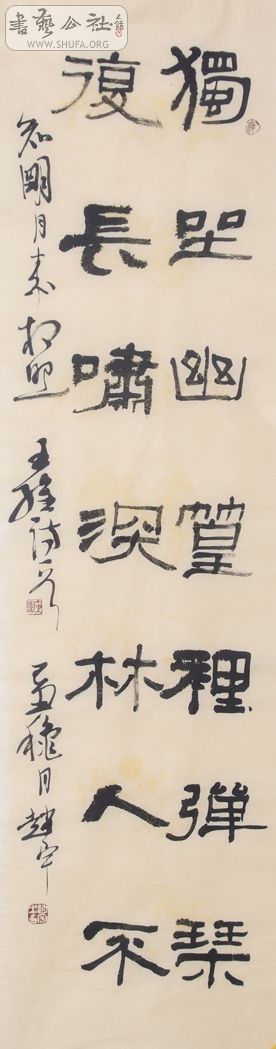 獨坐幽篁裡彈琴
復長嘯深林人不
知明月来相照 王維詩一首
書藝公社
WWW.SHUFA.ORG